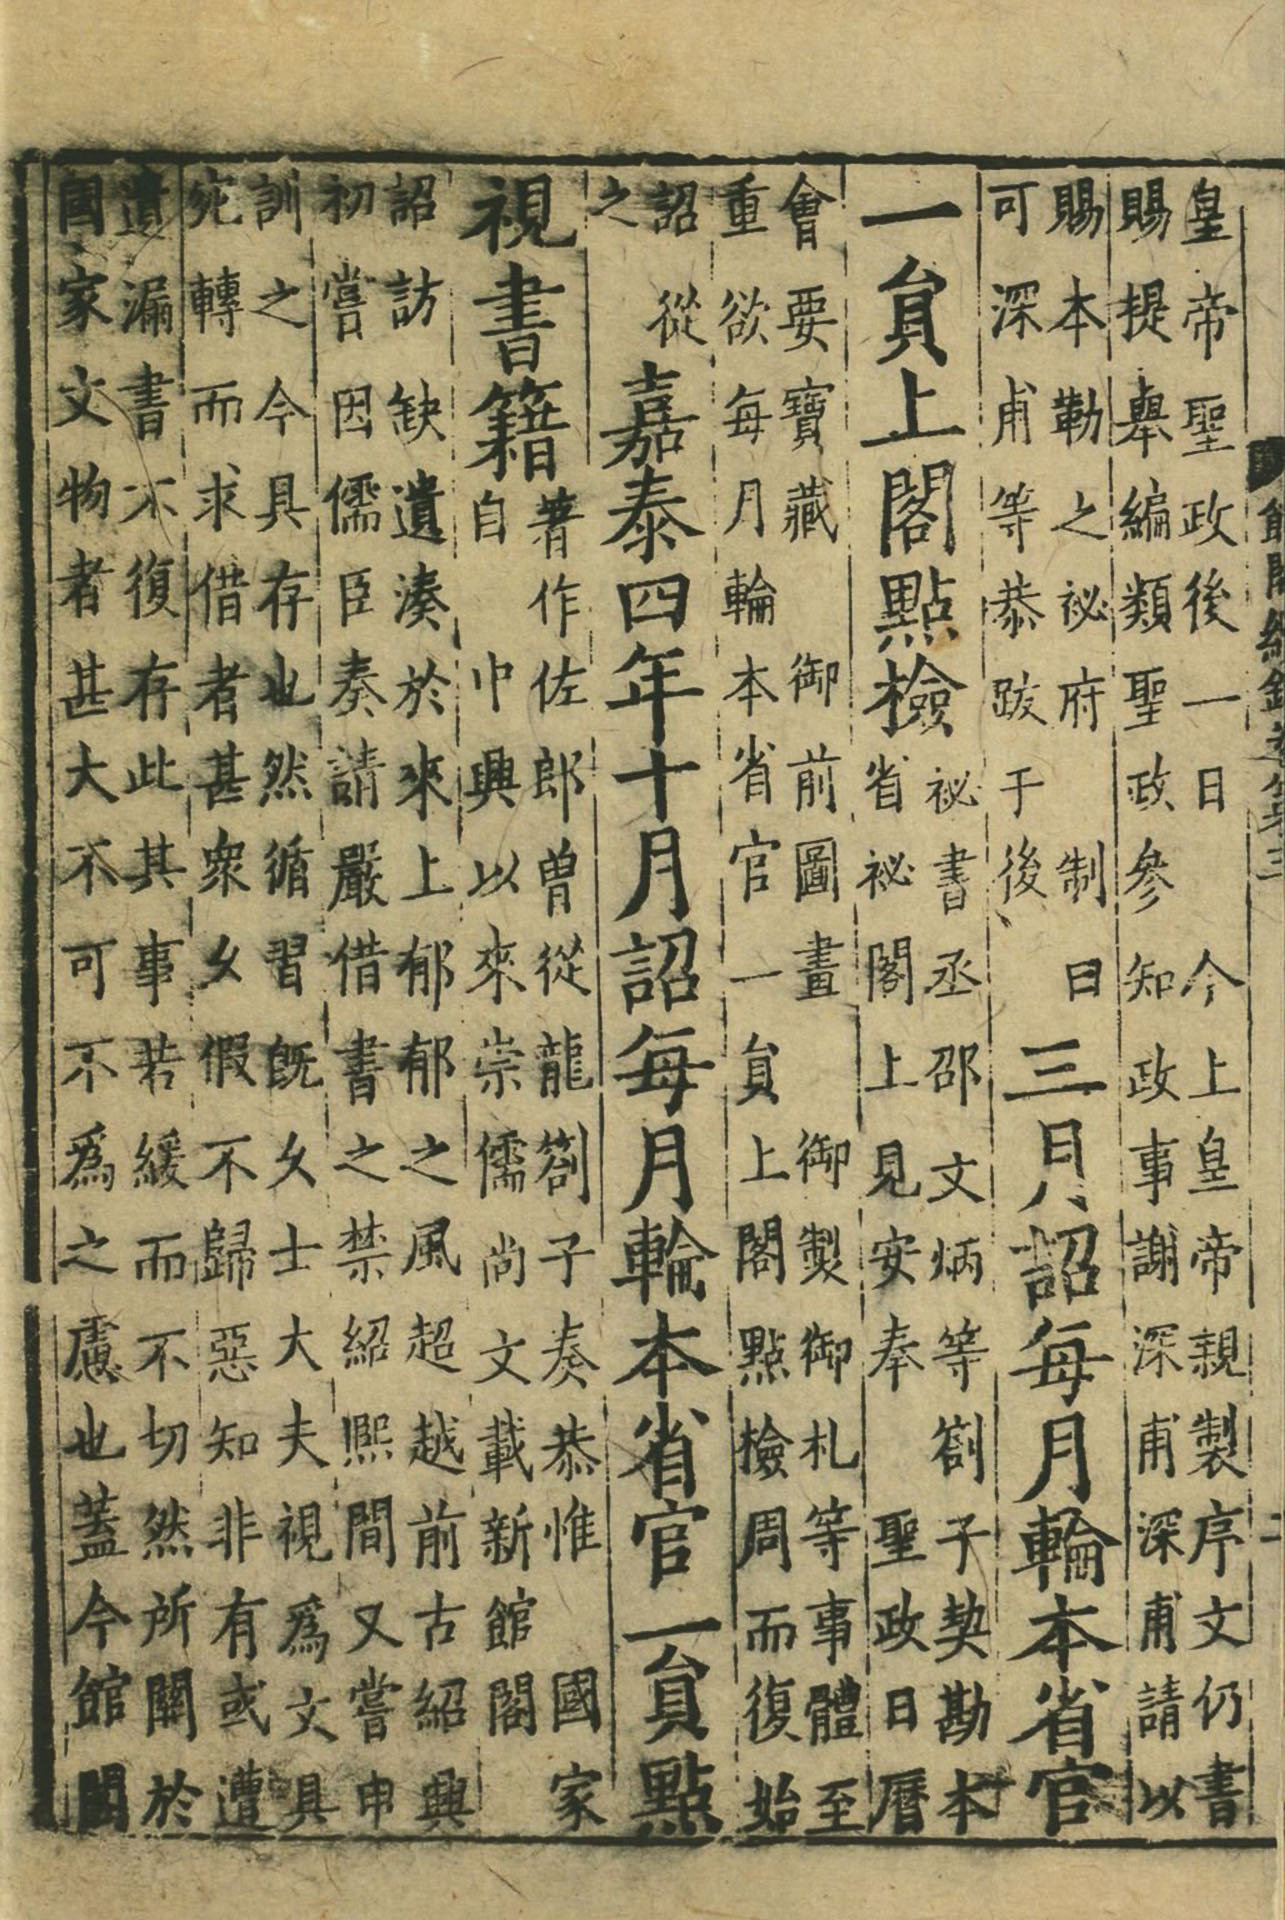 館閣續錄卷第三 二
皇帝聖政後一日 今上皇帝親製序文仍書
賜提舉編類聖政參知政事謝深甫深甫請以
賜本勒之祕府 制曰
可深甫等恭跋于後
三月詔每月輪本省官
一貟上閣點檢
祕書丞邵文炳等劄子契勘本
省祕閣上見安奉 聖政日曆
會要寶藏 御前圖畫 御製御札等事體至
重欲每月輪本省官一貟上閣點檢周而復始
詔從
之
嘉泰四年十月詔每月輪本省官一貟點
視書籍
著作佐郎曾從龍劄子奏恭惟 國家
自 中興以來崇儒尚文載新館閣
詔訪缺遺湊於來上郁郁之風超越前古紹興
初嘗因儒臣奏請嚴借書之禁紹熙間又嘗申
訓之今具存也然循習旣久士大夫視爲文具
宛轉而求借者甚衆久假不歸惡知非有或遭
遺漏書不復存此其事若緩而不切然所關於
國家文物者甚大不可不爲之慮也蓋今館閣